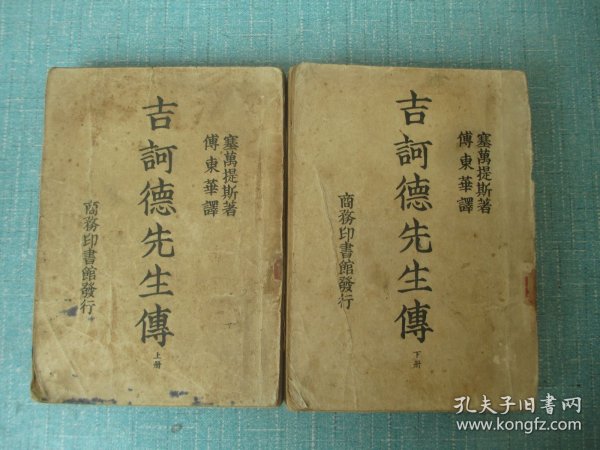 塞萬提斯著
傅東華譯
吉訶德先生傳
上册
商務印書館發行
塞萬提斯著
傅東華譯
吉訶德先生傳
下册
商務印書館發行
孔夫子旧书网
www.kongfz.com